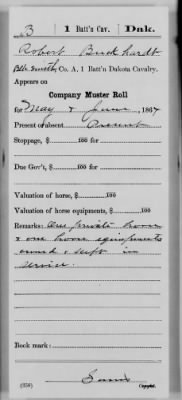 B | 1 Batt'n Cav. | Dak.
Robert Burkhardt
Blk Smith, Co. A, 1 Batt'n Dakota Cavalry.
Appears on
Company Muster Roll
for May & June, 1867
Present or absent Present
Stoppage, $ 100 for
Due Gov't, $ 100 for
Valuation of horse, $ 100
Valuation of horse equipments, $ 100
Remarks: One private horse
& one horse equipments
owned & kept in
service.
Book mark:
(358)
Copyist.